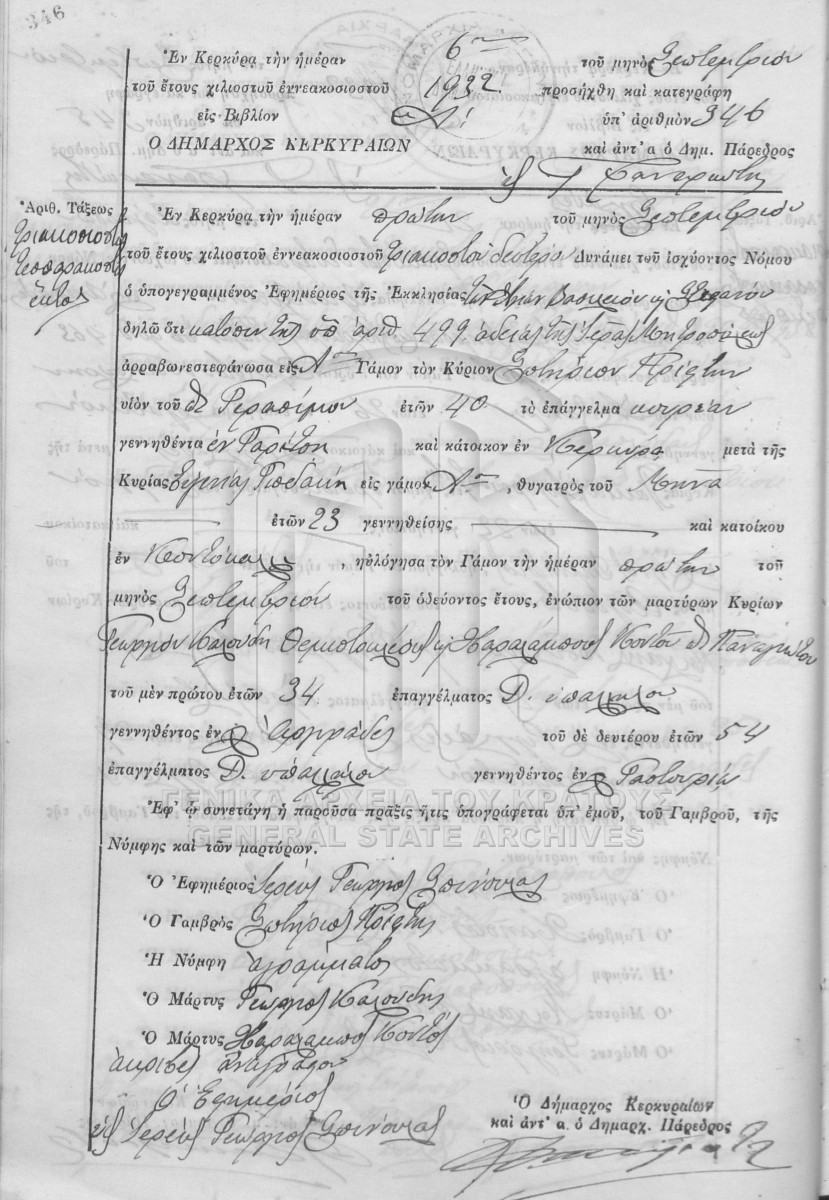 346
Ἐν Κερκύρᾳ τὴν ἡμέραν 6ην τοῦ μηνὸς Σεπτεμβρίου
τοῦ ἔτους χιλιοστοῦ ἐννεακοσιοστοῦ 1932 προσήχθη καὶ κατεγράφη
εἰς Βιβλίον Α' ὑπ' ἀριθμὸν 346
Ο ΔΗΜΑΡΧΟΣ ΚΕΡΚΥΡΑΙΩΝ καὶ ἀντ' α ὁ Δημ. Πάρεδρος
Ἀριθ. Τάξεως
τριακοσιοστὸς
τεσσαρακοστὸς
ἕκτος
Ἐν Κερκύρᾳ τὴν ἡμέραν πρώτην τοῦ μηνὸς Σεπτεμβρίου
τοῦ ἔτους χιλιοστοῦ ἐννεακοσιοστοῦ τριακοστοῦ δευτέρου Δυνάμει τοῦ ἰσχύοντος Νόμου
ὁ ὑπογεγραμμένος Ἐφημέριος τῆς Ἐκκλησίας τῶν Ἁγίων Βασιλείου κ Στεφάνου
δηλῶ ὅτι κατόπιν τῆς ὑπ' ἀριθ. 499 ἀδείας τῆς Ἱερᾶς Μητροπόλεως
ἀρραβωνεστεφάνωσα εἰς Αον Γάμον τὸν Κύριον Σωτήριον Πρίφτην
υἱὸν τοῦ Γερασίμου ἐτῶν 40 τὸ ἐπάγγελμα κουρέαν
γεννηθέντα ἐν Γαρίτσῃ καὶ κάτοικον ἐν Κερκύρᾳ μετὰ τῆς
Κυρίας Εὐγενίας εἰς γάμον Αον, θυγατρὸς τοῦ Μηνᾶ
ἐτῶν 23 γεννηθείσης καὶ κατοίκου
ἐν Κοντόκαλι, ηὐλόγησα τὸν Γάμον τὴν ἡμέραν πρώτην τοῦ
μηνὸς Σεπτεμβρίου τοῦ ὁδεύοντος ἔτους, ἐνώπιον τῶν μαρτύρων Κυρίων
Γεωργίου Καλούδη Θεμιστοκλέους κ Χαραλάμπους Κοντοῦ Παναγιώτου
τοῦ μὲν πρώτου ἐτῶν 34 ἐπαγγέλματος Δ. ὑπαλλήλου
γεννηθέντος ἐν Ἀργυράδες τοῦ δὲ δευτέρου ἐτῶν 54
ἐπαγγέλματος Δ. ὑπαλλήλου γεννηθέντος ἐν Γαστούρι
Ἐφ' ᾧ συνετάγη ἡ παροῦσα πρᾶξις ἥτις ὑπογράφεται ὑπ' ἐμοῦ, τοῦ Γαμβροῦ, τῆς
Νύμφης καὶ τῶν μαρτύρων.
ΓΕΝΙΚΑ ΑΡΧΕΙΑ ΤΟΥ ΚΡΑΤΟΥΣ
GENERAL STATE ARCHIVES
Ὁ Ἐφημέριος Ἱερεὺς Γεώργιος Σπίνουλας
Ὁ Γαμβρὸς Σωτήριος Πρίφτης
Ἡ Νύμφη ἀγράμματος
Ὁ Μάρτυς Γεώργιος Καλούδης
Ὁ Μάρτυς Χαράλαμπος Κοντός
ἀκριβὲς ἀντίγραφον
Ὁ Ἐφημέριος
Ἱερεὺς Γεώργιος Σπίνουλας
Ὁ Δήμαρχος Κερκυραίων
καὶ ἀντ' α. ὁ Δημαρχ. Πάρεδρος